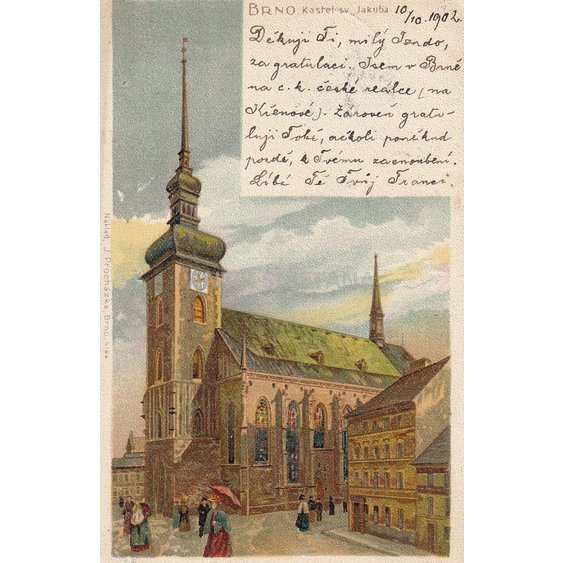 BRNO. Kostel sv. Jakuba. 10/10 1902.
Děkuji Ti, milý Jendo,
za gratulaci. Jsem v Brně
na c. k. české reálce (na
Křenové). Zároveň gratu-
luji Tobě, ačkoli poněkud
pozdě, k Tvému zasnoubení.
Líbá Tě Tvůj Franci.
Náklad. J. Procházka Brno